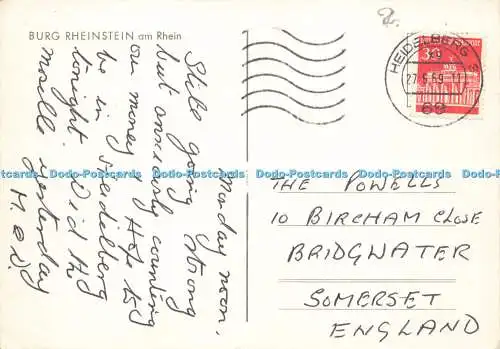 BURG RHEINSTEIN am Rhein
Monday noon.
Still going strong
but anxiously counting
our money. Hope to
be in Heidelberg
tonight. Did the
Moselle yesterday
HEIDELBERG
27.5.69
69
30
THE POWELLS
10 BIRCHAM CLOSE
BRIDGWATER
SOMERSET
ENGLAND
Dodo-Postcards Dodo-Postcards Dodo-Postcards Dodo-Postcards Dodo-Postcards